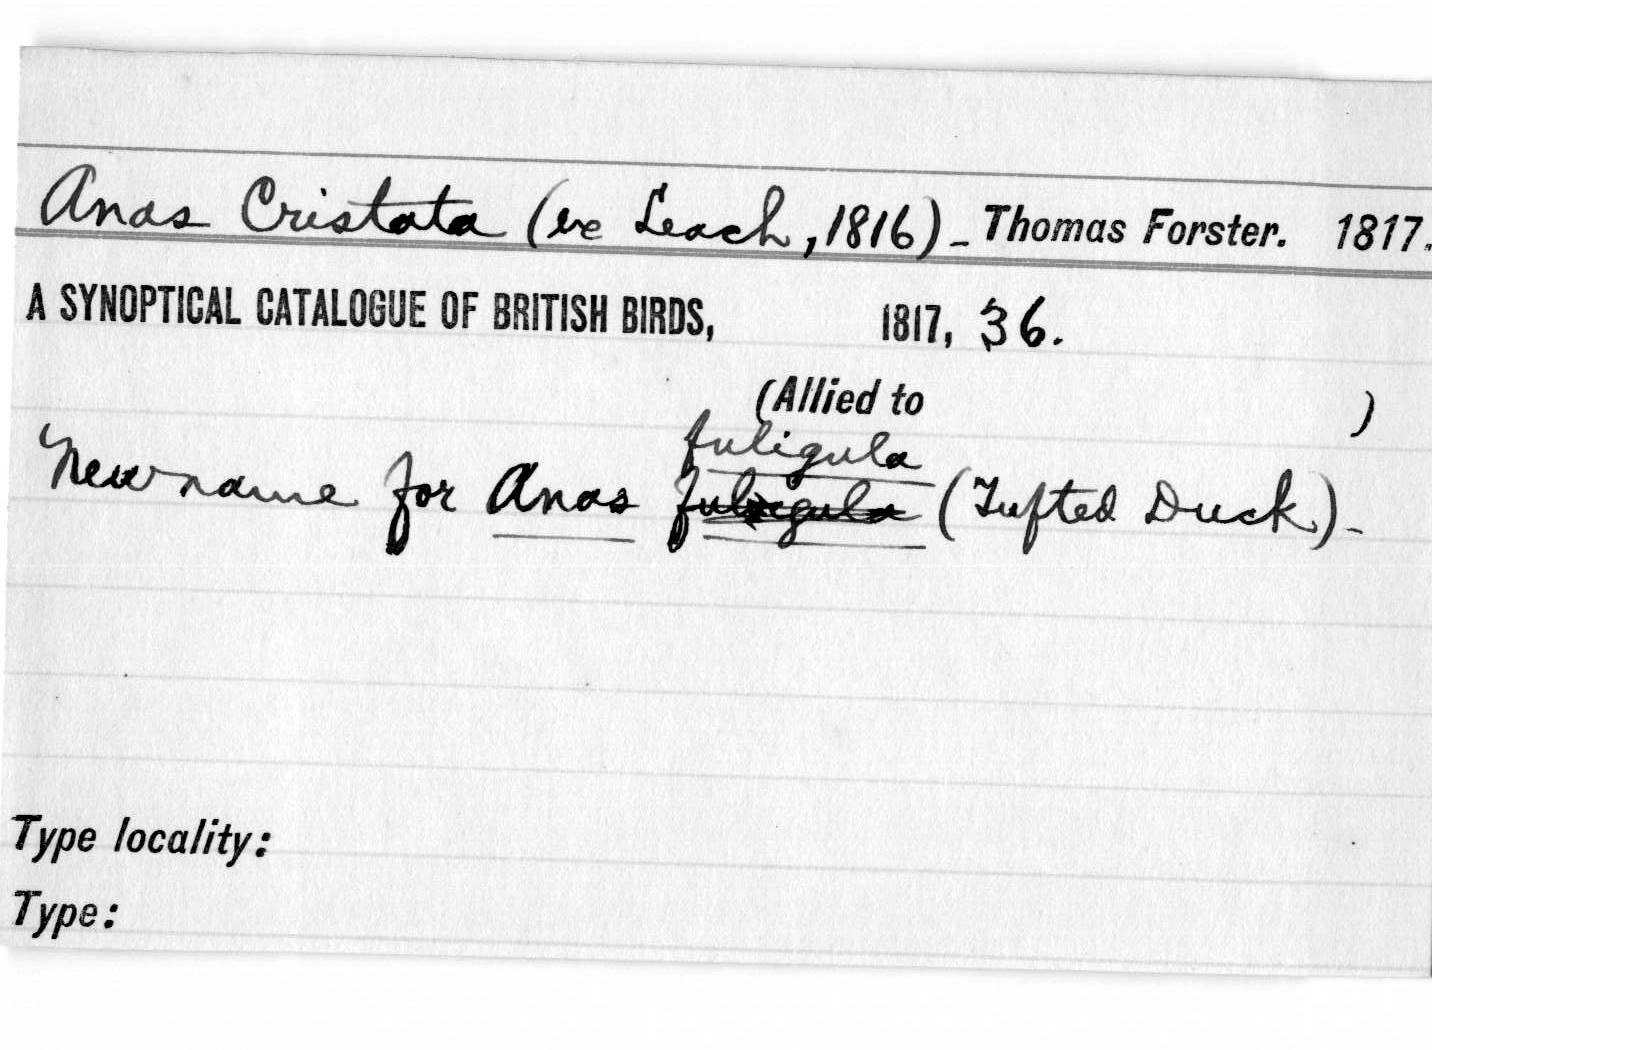 Anas Cristata (ex Leach, 1816) - Thomas Forster. 1817.
A SYNOPTICAL CATALOGUE OF BRITISH BIRDS, 1817, 36.
(Allied to )
fuligula
New name for Anas (Tufted Duck) -
Type locality:
Type: